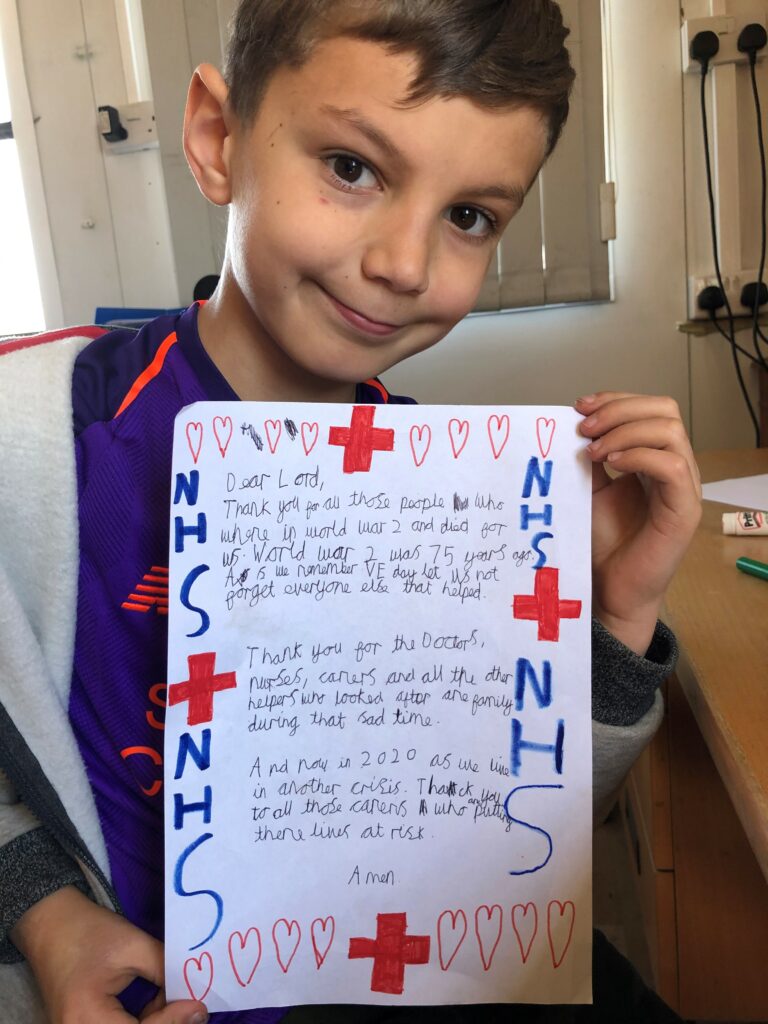 NHS
NHS
NHS
NHS
Dear Lord,
Thank you for all those people who
where in world war 2 and died for
us. World war 2 was 75 years ago.
As is we remember VE day let us not
forget everyone else that helped.
Thank you for the Doctors,
nurses, carers and all the other
helpers who looked after are family
during that sad time.
And now in 2020 as we live
in another crisis. Thank you
to all those carers who are putting
there lines at risk.
Amen